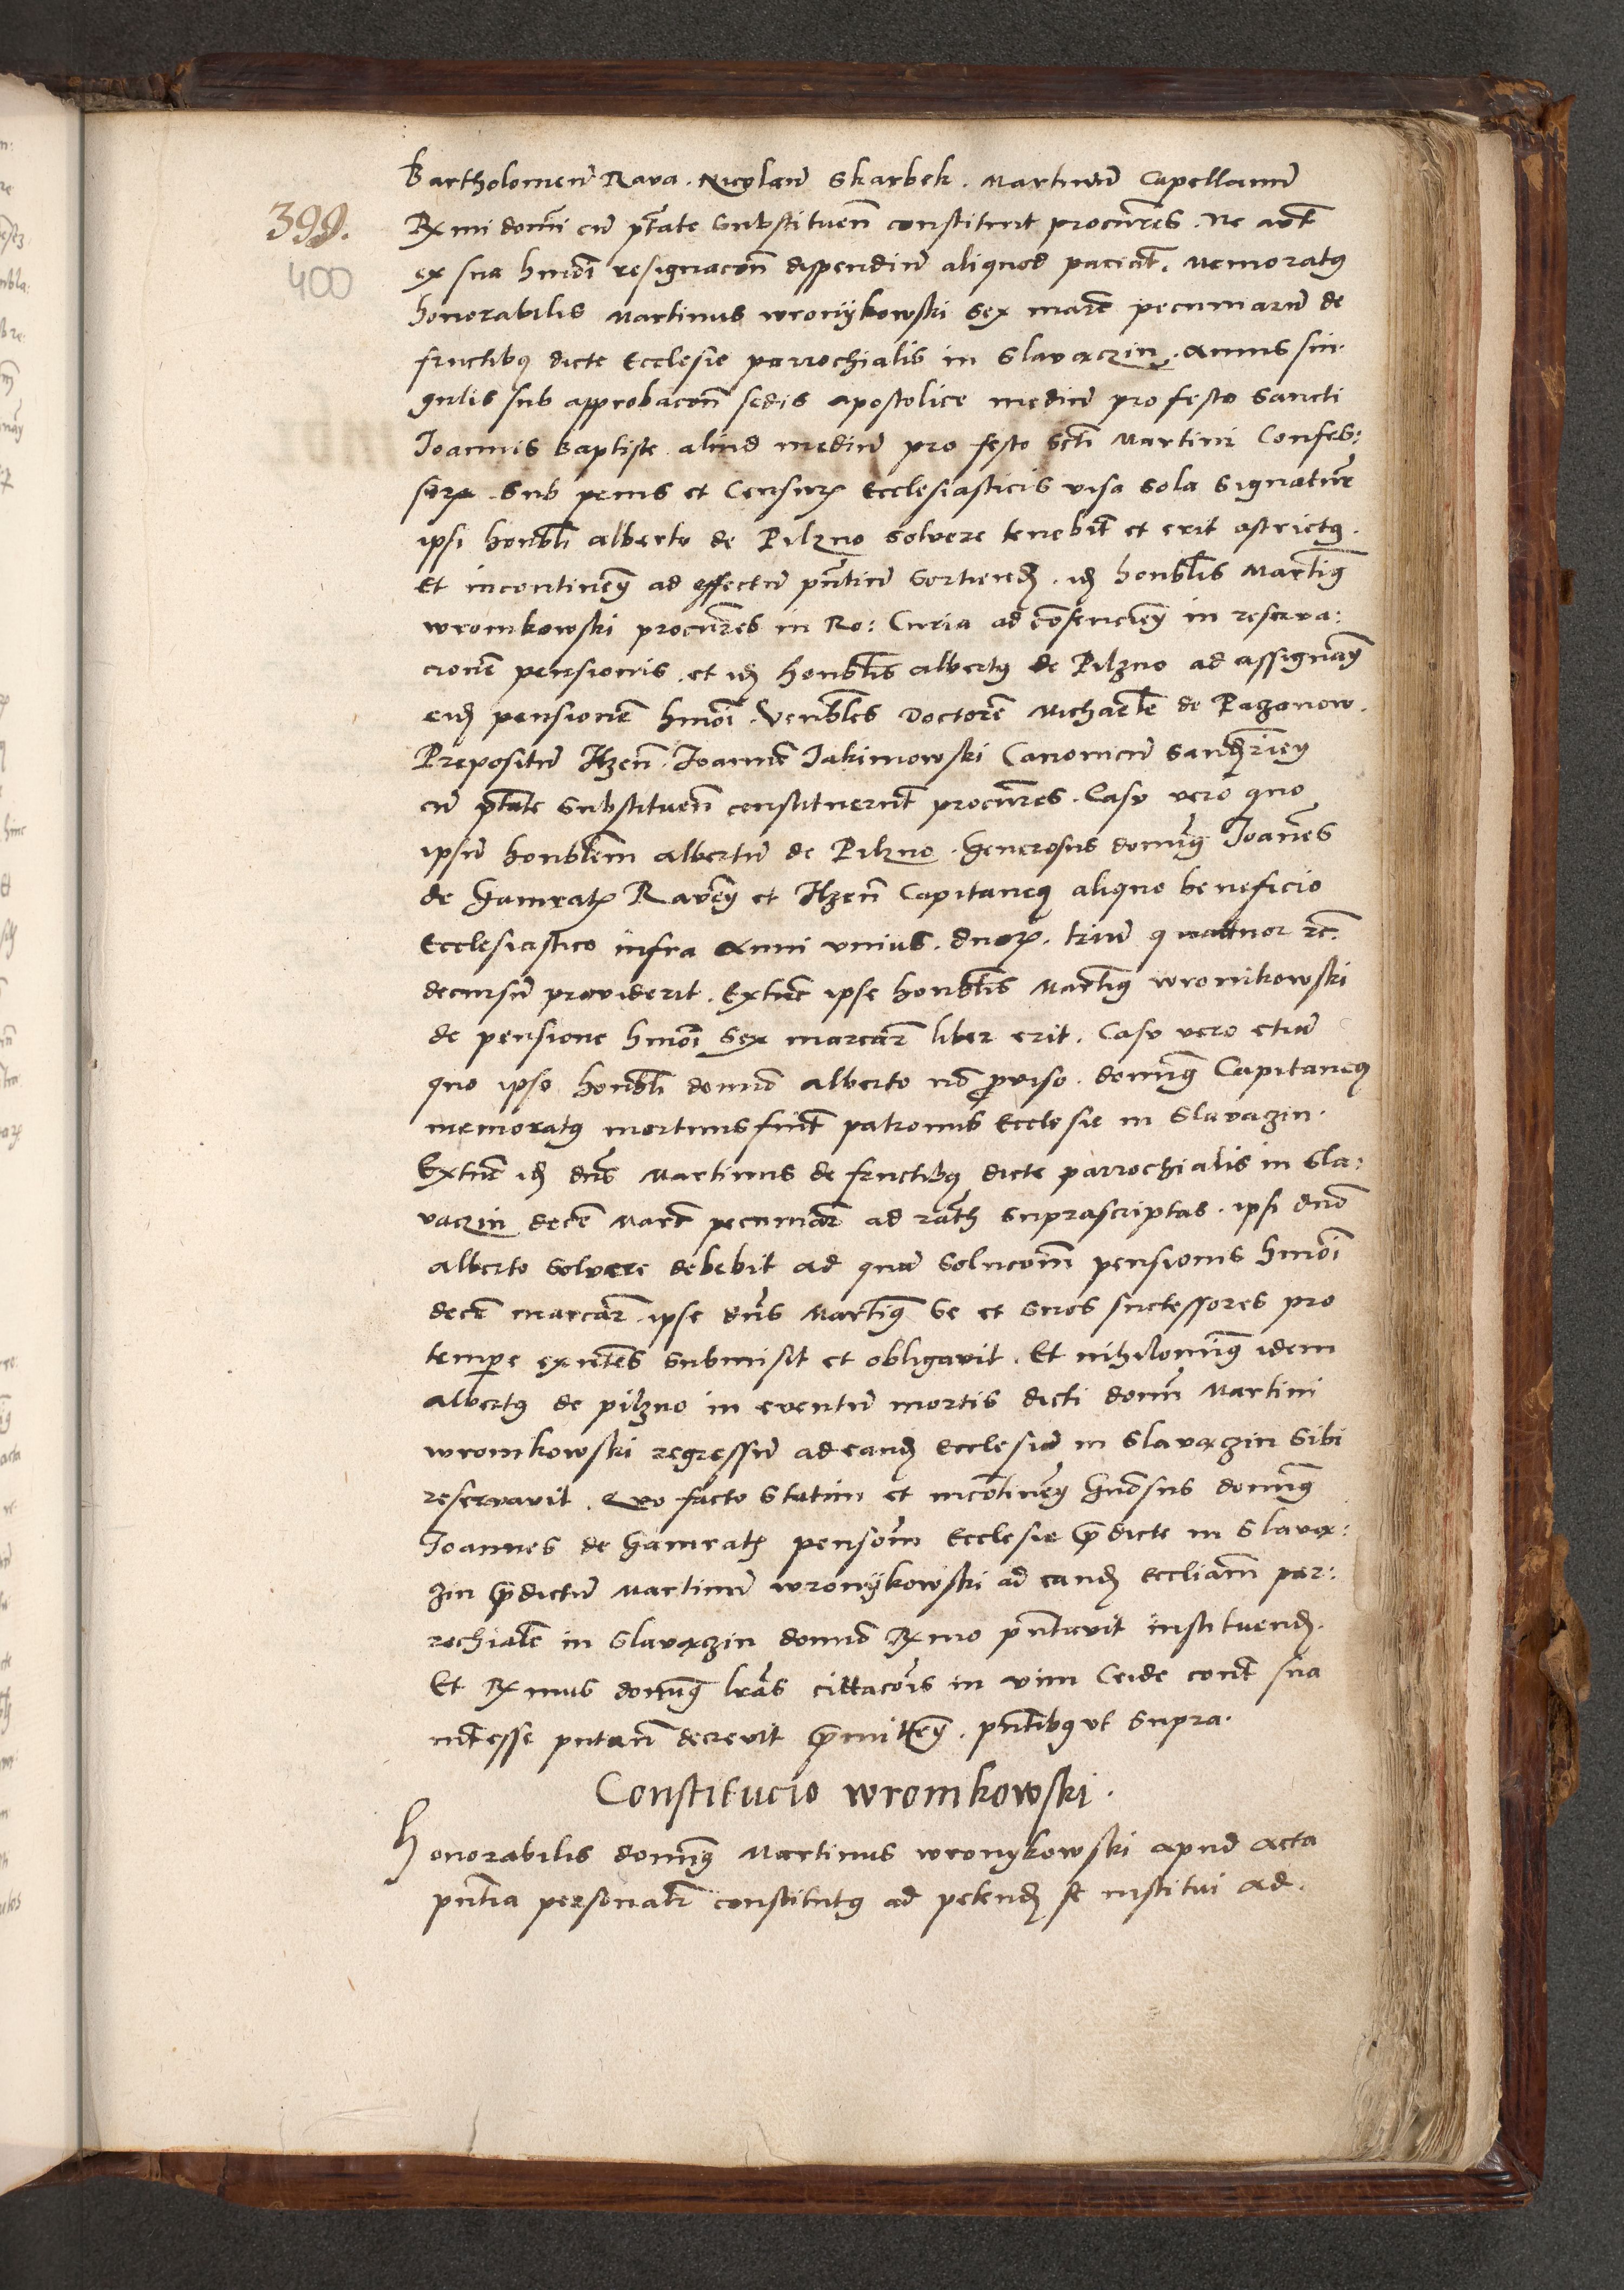 Bartholomeũ Rava. Nicolaũ Skarbek. Martinũ Capellanũ
399.
Rx̃mi domĩ cũ ptãte Substituen̄ constituit procũres. Ne aũt
400
ex sua hmõi resignacoñ dispendiũ aliquod paciat̃. Memoratq
honorabilis Martinus wronijkowski sex marc̃ pecuniarũ de
fructibq dicte Ecclesie parrochialis in Slavaczin. annis sin-
gulis sub approbacoñ sedis apostolice mediũ pro festo Sancti
Joannis Baptiste aliud mediũ pro festo Scti Martini Confes:
soris sub penis et Censurꝫ Ecclesiasticis visa sola Signatur̃
ipsi honbli alberto de Pilzno solvere tenebit̃ et erit astrictq.
Et incontinenꝫ ad effectũ pñtiũ Sortiendꝫ. idꝫ honblis Martinq
wronikowski procũres in Ro: Curia ad cõsencienꝫ in reserva:
cionẽ pensionis. et idꝫ honblis albertq de Pilzno ad assignanꝫ
eidꝫ pensionẽ hmõi. Venbles Doctorẽ Michaelẽ de Paczanow.
Prepositũ Ilzen̄. Joannẽ Jakimowski Canonicũ Sandꝫrienꝫ
cũ ptãte substituen̄ constituerũt procũres. Casu vero quo
ipsũ honblem albertũ de Pilzno. Generosus domĩq Joanes
de Gamratꝫ Ravenꝫ et Ilzen̄ Capitaneq aliquo beneficio
Ecclesiastico infra anni unius. duorꝫ. triũ quattuor ec̃.
decursũ providerit. Extũc ipse honblis Martinq wronikowski
de pensione hmõi Sex marcar̃ liber erit. Casu vero etiã
quo ipso honbli domĩo alberto nõ proviso. domĩq Capitaneq
memoratq mortuus fuit̃ patronus Ecclesie in Slavaczin.
Extũc idꝫ dñs Martinus de fructibq dicte parrochialis in Sla:
vaczin decẽ Marc̃ pecuniar̃ ad suprascriptas. ipsi dño
alberto solvere debebit ad quã solucoñ pensionis hmõi
decẽ marcar̃ ipse dñs Martinq se et suos successores pro
tempe exñtes submisit et obligavit. Et nihilominq idem
albertq de pilzno in eventũ mortis dicti domĩ Martini
wronikowski regressũ ad eandꝫ Ecclesiã in Slavaczin Sibi
reservavit. Quo facto statim et incõtinenꝫ Gñosus domĩq
Joannes de Gamratꝫ Ecclesie pdicte in Slava:
zin pdictũ Martinũ wronijkowski ad eandꝫ Eccliam par:
rochialẽ in Slavaczin domĩo Rx̃mo pñtavit instituendꝫ.
Et Rx̃mus domĩq lrãs cittacõis in vim Ceide cont̃ sua
intesse putan̄ decrevit pmittenꝫ. pñtibq ut supra.
Constitucio wronikowski.
Honorabilis domĩq Martinus wronykowski apud acta
pñtia personalr̃ constitutq ad petendꝫ se institui ad.